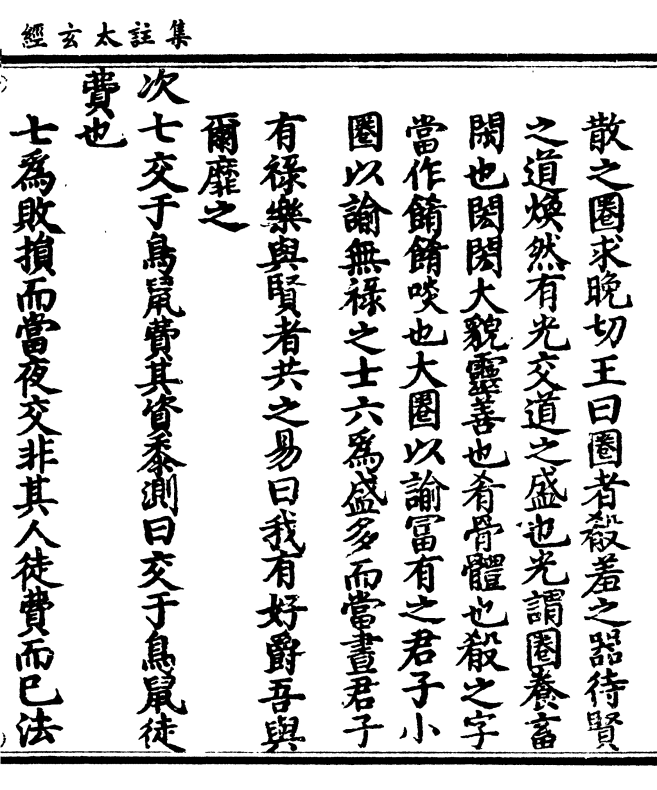 集註太玄經
散之圈求晚切王曰圈者殽羞之器待賢
之道煥然有光交道之盛也光謂圈養畜
閑也閎閎大貌靈善也肴骨體也殽之字
當作餚餚啖也大圈以諭冨有之君子小
圈以諭無祿之士六爲盛多而當晝君子
有祿樂與賢者共之易曰我有好爵吾與
爾靡之
次七交于鳥鼠費其資黍測曰交于鳥鼠徒
費也
七爲敗損而當夜交非其人徒費而已法